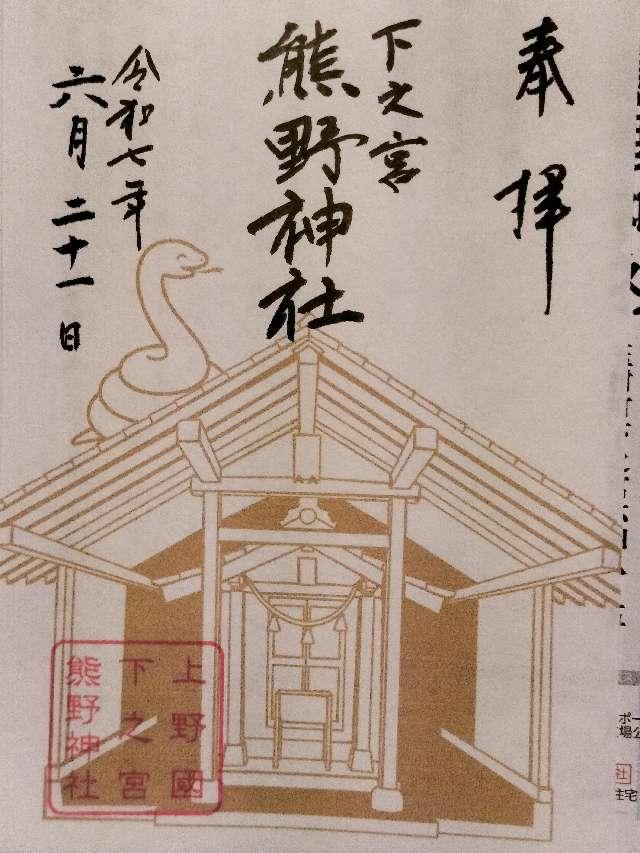 奉拝
下之宮
熊野神社
令和七年
六月二十一日
上野國
下之宮
熊野神社